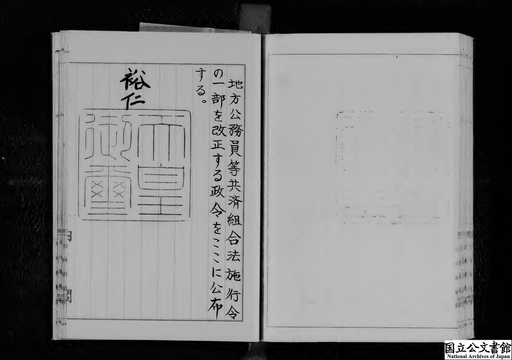 地方公務員等共済組合法施行令
の一部を改正する政令をここに公布
する。
裕仁
天皇
御璽
内閣
国立公文書館
National Archives of Japan